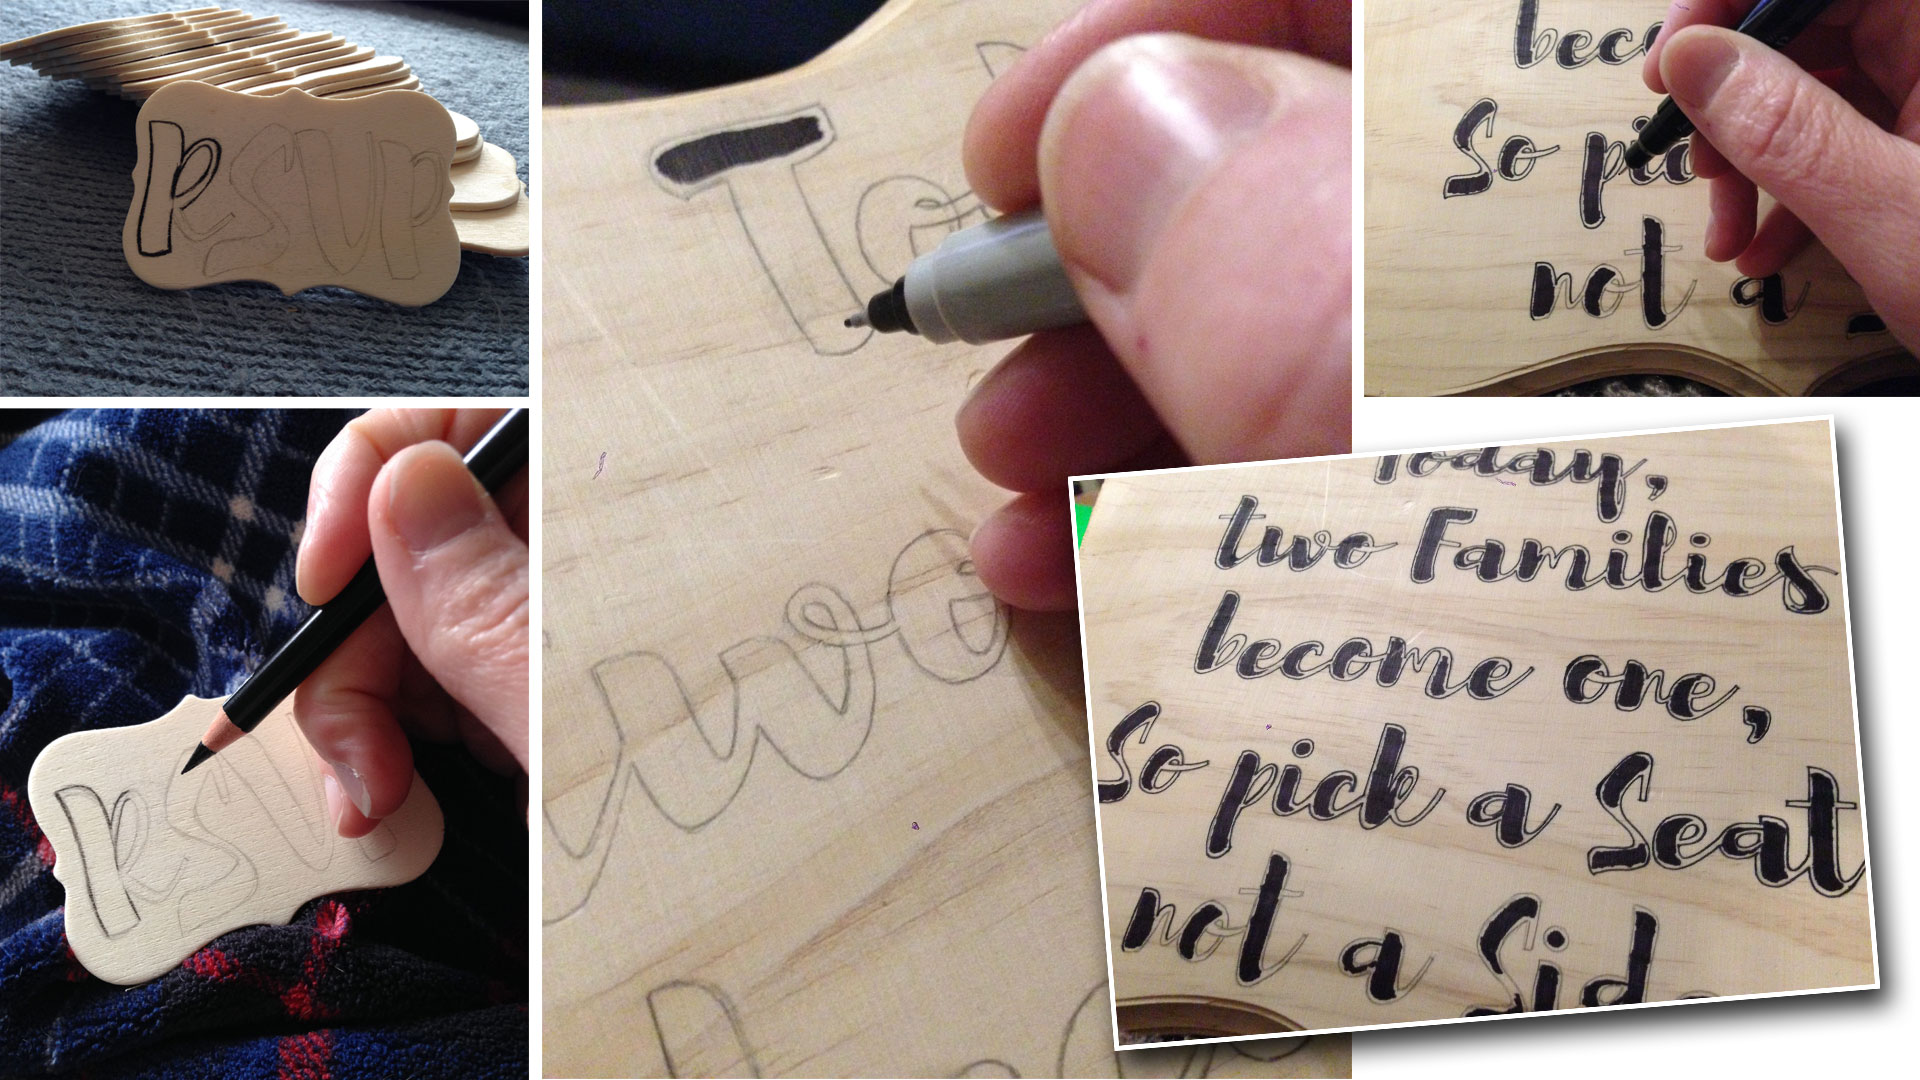 RSVP
RSVP
To
two
beco
So pic
not a
Today,
two Families
become one,
So pick a Seat
not a Side